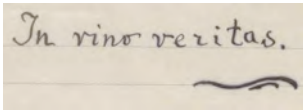 In vino veritas.